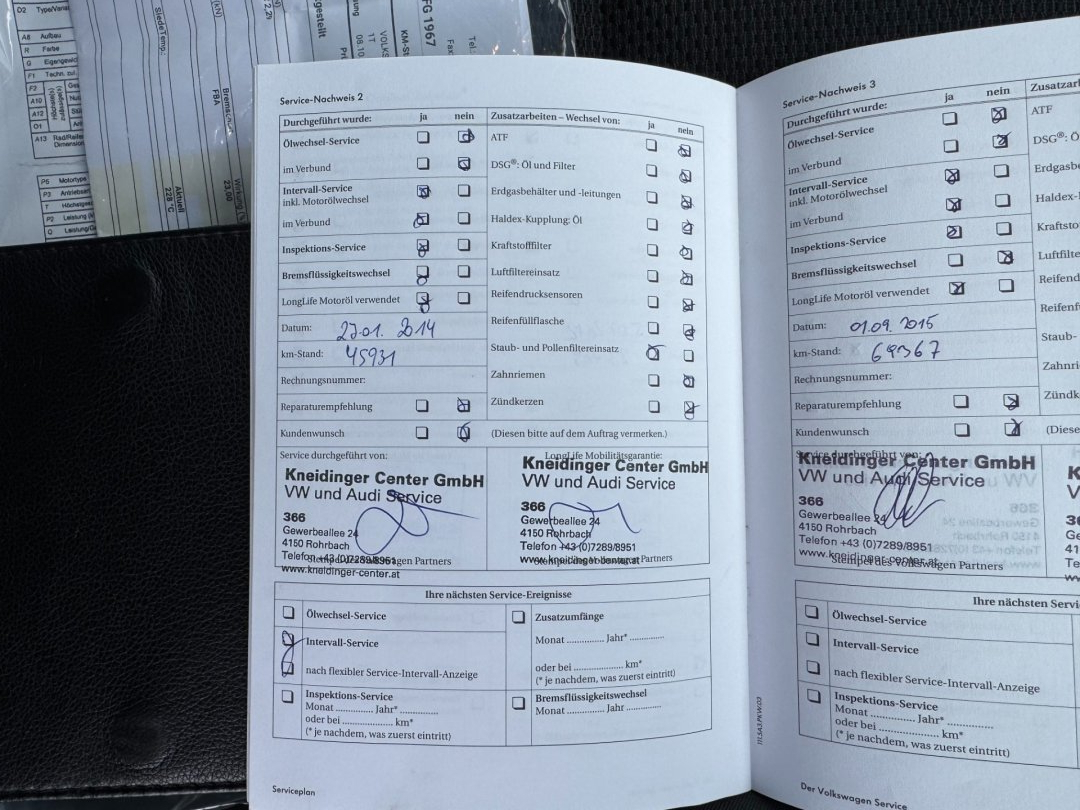 D2 Type/Varian
A8 Aufbau
R Farbe
G Eigengewicht
F1 Techn. zul.
F2
A10
A12
O1
A13 Rad/Reifen
Dimension
P5 Motortype
P3 Antriebsart
T Höchstges
P2 Leistung
Q Leistung/G
SiedeTemp.:
Aktuell
228 °C
FBA
23.00
gestellt
08.10.
VOLKS
1T
KM-St
FG 1967
Fax
Tel.:
Service-Nachweis 2
Durchgeführt wurde: ja nein
Ölwechsel-Service
im Verbund
Intervall-Service
inkl. Motorölwechsel
im Verbund
Inspektions-Service
Bremsflüssigkeitswechsel
LongLife Motoröl verwendet
Datum: 27.01. 2014
km-Stand: 45931
Rechnungsnummer:
Reparaturempfehlung
Kundenwunsch
Zusatzarbeiten – Wechsel von: ja nein
ATF
DSG®: Öl und Filter
Erdgasbehälter und -leitungen
Haldex-Kupplung: Öl
Kraftstofffilter
Luftfiltereinsatz
Reifendrucksensoren
Reifenfüllflasche
Staub- und Pollenfiltereinsatz
Zahnriemen
Zündkerzen
(Diesen bitte auf dem Auftrag vermerken.)
Service durchgeführt von:
Kneidinger Center GmbH
VW und Audi Service
366
Gewerbeallee 24
4150 Rohrbach
Telefon +43 (0)7289/8951
Stempel des Volkswagen Partners
www.kneidinger-center.at
LongLife Mobilitätsgarantie:
Kneidinger Center GmbH
VW und Audi Service
366
Gewerbeallee 24
4150 Rohrbach
Telefon +43 (0)7289/8951
www.kneidinger-center.at
Stempel des Volkswagen Partners
Ihre nächsten Service-Ereignisse
Ölwechsel-Service
Intervall-Service
nach flexibler Service-Intervall-Anzeige
Inspektions-Service
Monat .............. Jahr* ..............
oder bei ................... km*
(* je nachdem, was zuerst eintritt)
Zusatzumfänge
Monat .............. Jahr* ..............
oder bei ................... km*
(* je nachdem, was zuerst eintritt)
Bremsflüssigkeitswechsel
Monat .............. Jahr ..............
Serviceplan
Service-Nachweis 3
Durchgeführt wurde: ja nein
Ölwechsel-Service
im Verbund
Intervall-Service
inkl. Motorölwechsel
im Verbund
Inspektions-Service
Bremsflüssigkeitswechsel
LongLife Motoröl verwendet
Datum: 01.09. 2015
km-Stand: 69367
Rechnungsnummer:
Reparaturempfehlung
Kundenwunsch
Zusatzar
ATF
DSG®: Ö
Erdgasbe
Haldex-
Kraftsto
Luftfilte
Reifend
Reifenf
Staub-
Zahnri
Zündk
(Diese
Service durchgeführt von:
Kneidinger Center GmbH
VW und Audi Service
366
Gewerbeallee 24
4150 Rohrbach
Telefon +43 (0)7289/8951
www.kneidinger-center.at
Stempel des Volkswagen Partners
Ihre nächsten Servi
Ölwechsel-Service
Intervall-Service
nach flexibler Service-Intervall-Anzeige
Inspektions-Service
Monat .............. Jahr* ..............
oder bei ................... km*
(* je nachdem, was zuerst eintritt)
Der Volkswagen Service